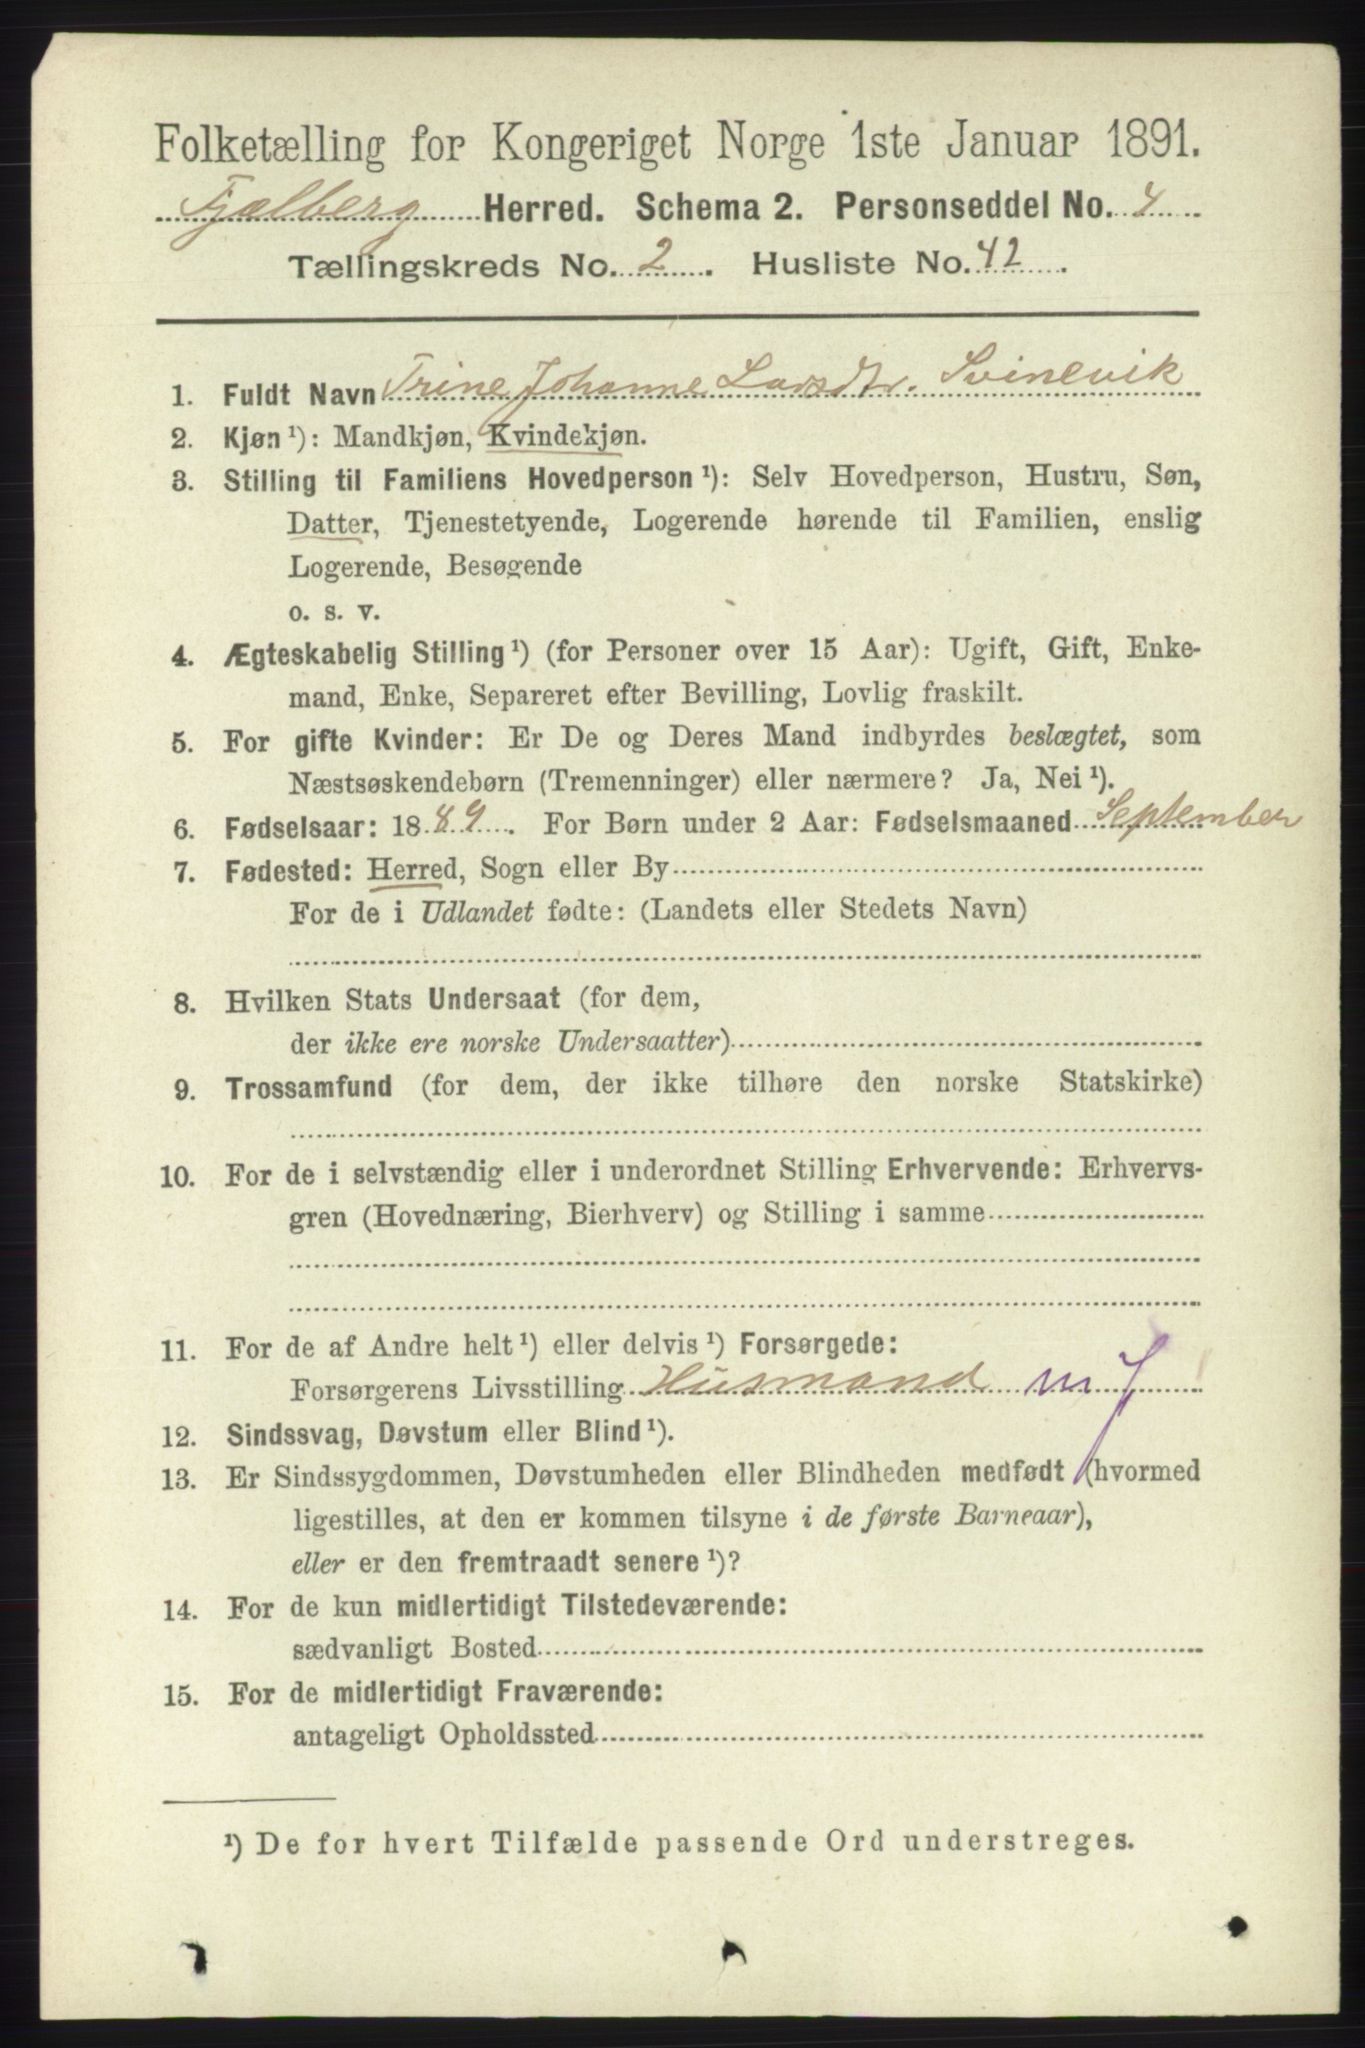 Folketælling for Kongeriget Norge 1ste Januar 1891.
Fjælberg Herred. Schema 2. Personseddel No. 4
Tællingskreds No. 2. Husliste No. 42.
1. Fuldt Navn Trine Johanne Larsdtr. Svinevik
2. Kjøn ¹): Mandkjøn, Kvindekjøn.
3. Stilling til Familiens Hovedperson ¹): Selv Hovedperson, Hustru, Søn,
Datter, Tjenestetyende, Logerende hørende til Familien, enslig
Logerende, Besøgende
o. s. v.
4. Ægteskabelig Stilling ¹) (for Personer over 15 Aar): Ugift, Gift, Enke-
mand, Enke, Separeret efter Bevilling, Lovlig fraskilt.
5. For gifte Kvinder: Er De og Deres Mand indbyrdes beslægtet, som
Næstsøskendebørn (Tremenninger) eller nærmere? Ja, Nei ¹).
6. Fødselsaar: 1889. For Børn under 2 Aar: Fødselsmaaned September
7. Fødested: Herred, Sogn eller By
For de i Udlandet fødte: (Landets eller Stedets Navn)
8. Hvilken Stats Undersaat (for dem,
der ikke ere norske Undersaatter)
9. Trossamfund (for dem, der ikke tilhøre den norske Statskirke)
10. For de i selvstændig eller i underordnet Stilling Erhvervende: Erhvervs-
gren (Hovednæring, Bierhverv) og Stilling i samme
11. For de af Andre helt ¹) eller delvis ¹) Forsørgede:
Forsørgerens Livsstilling Husmand m J
12. Sindssvag, Døvstum eller Blind ¹).
13. Er Sindssygdommen, Døvstumheden eller Blindheden medfødt (hvormed
ligestilles, at den er kommen tilsyne i de første Barneaar),
eller er den fremtraadt senere ¹)?
14. For de kun midlertidigt Tilstedeværende:
sædvanligt Bosted
15. For de midlertidigt Fraværende:
antageligt Opholdssted
¹) De for hvert Tilfælde passende Ord understreges.